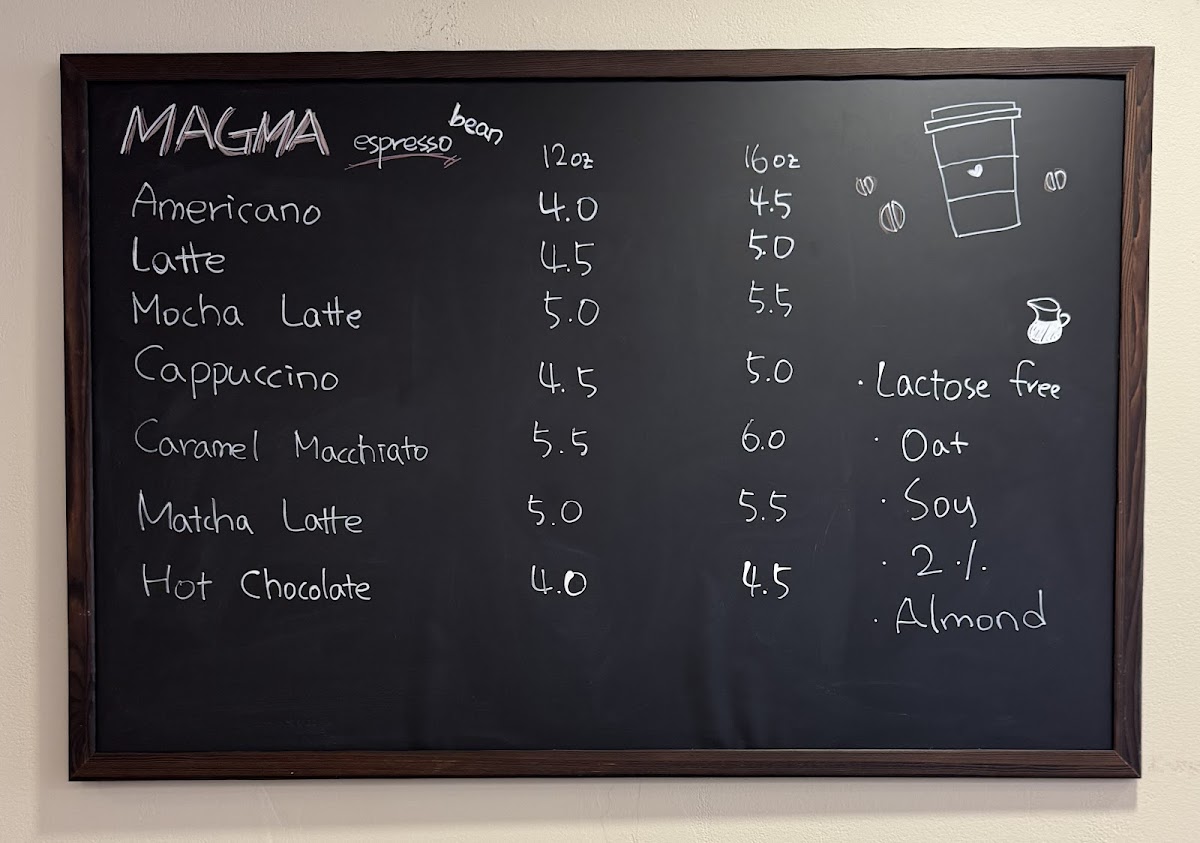 MAGMA espresso bean
12oz 16oz
Americano 4.0 4.5
Latte 4.5 5.0
Mocha Latte 5.0 5.5
Cappuccino 4.5 5.0
Caramel Macchiato 5.5 6.0
Matcha Latte 5.0 5.5
Hot Chocolate 4.0 4.5
· Lactose free
· Oat
· Soy
· 2%
· Almond